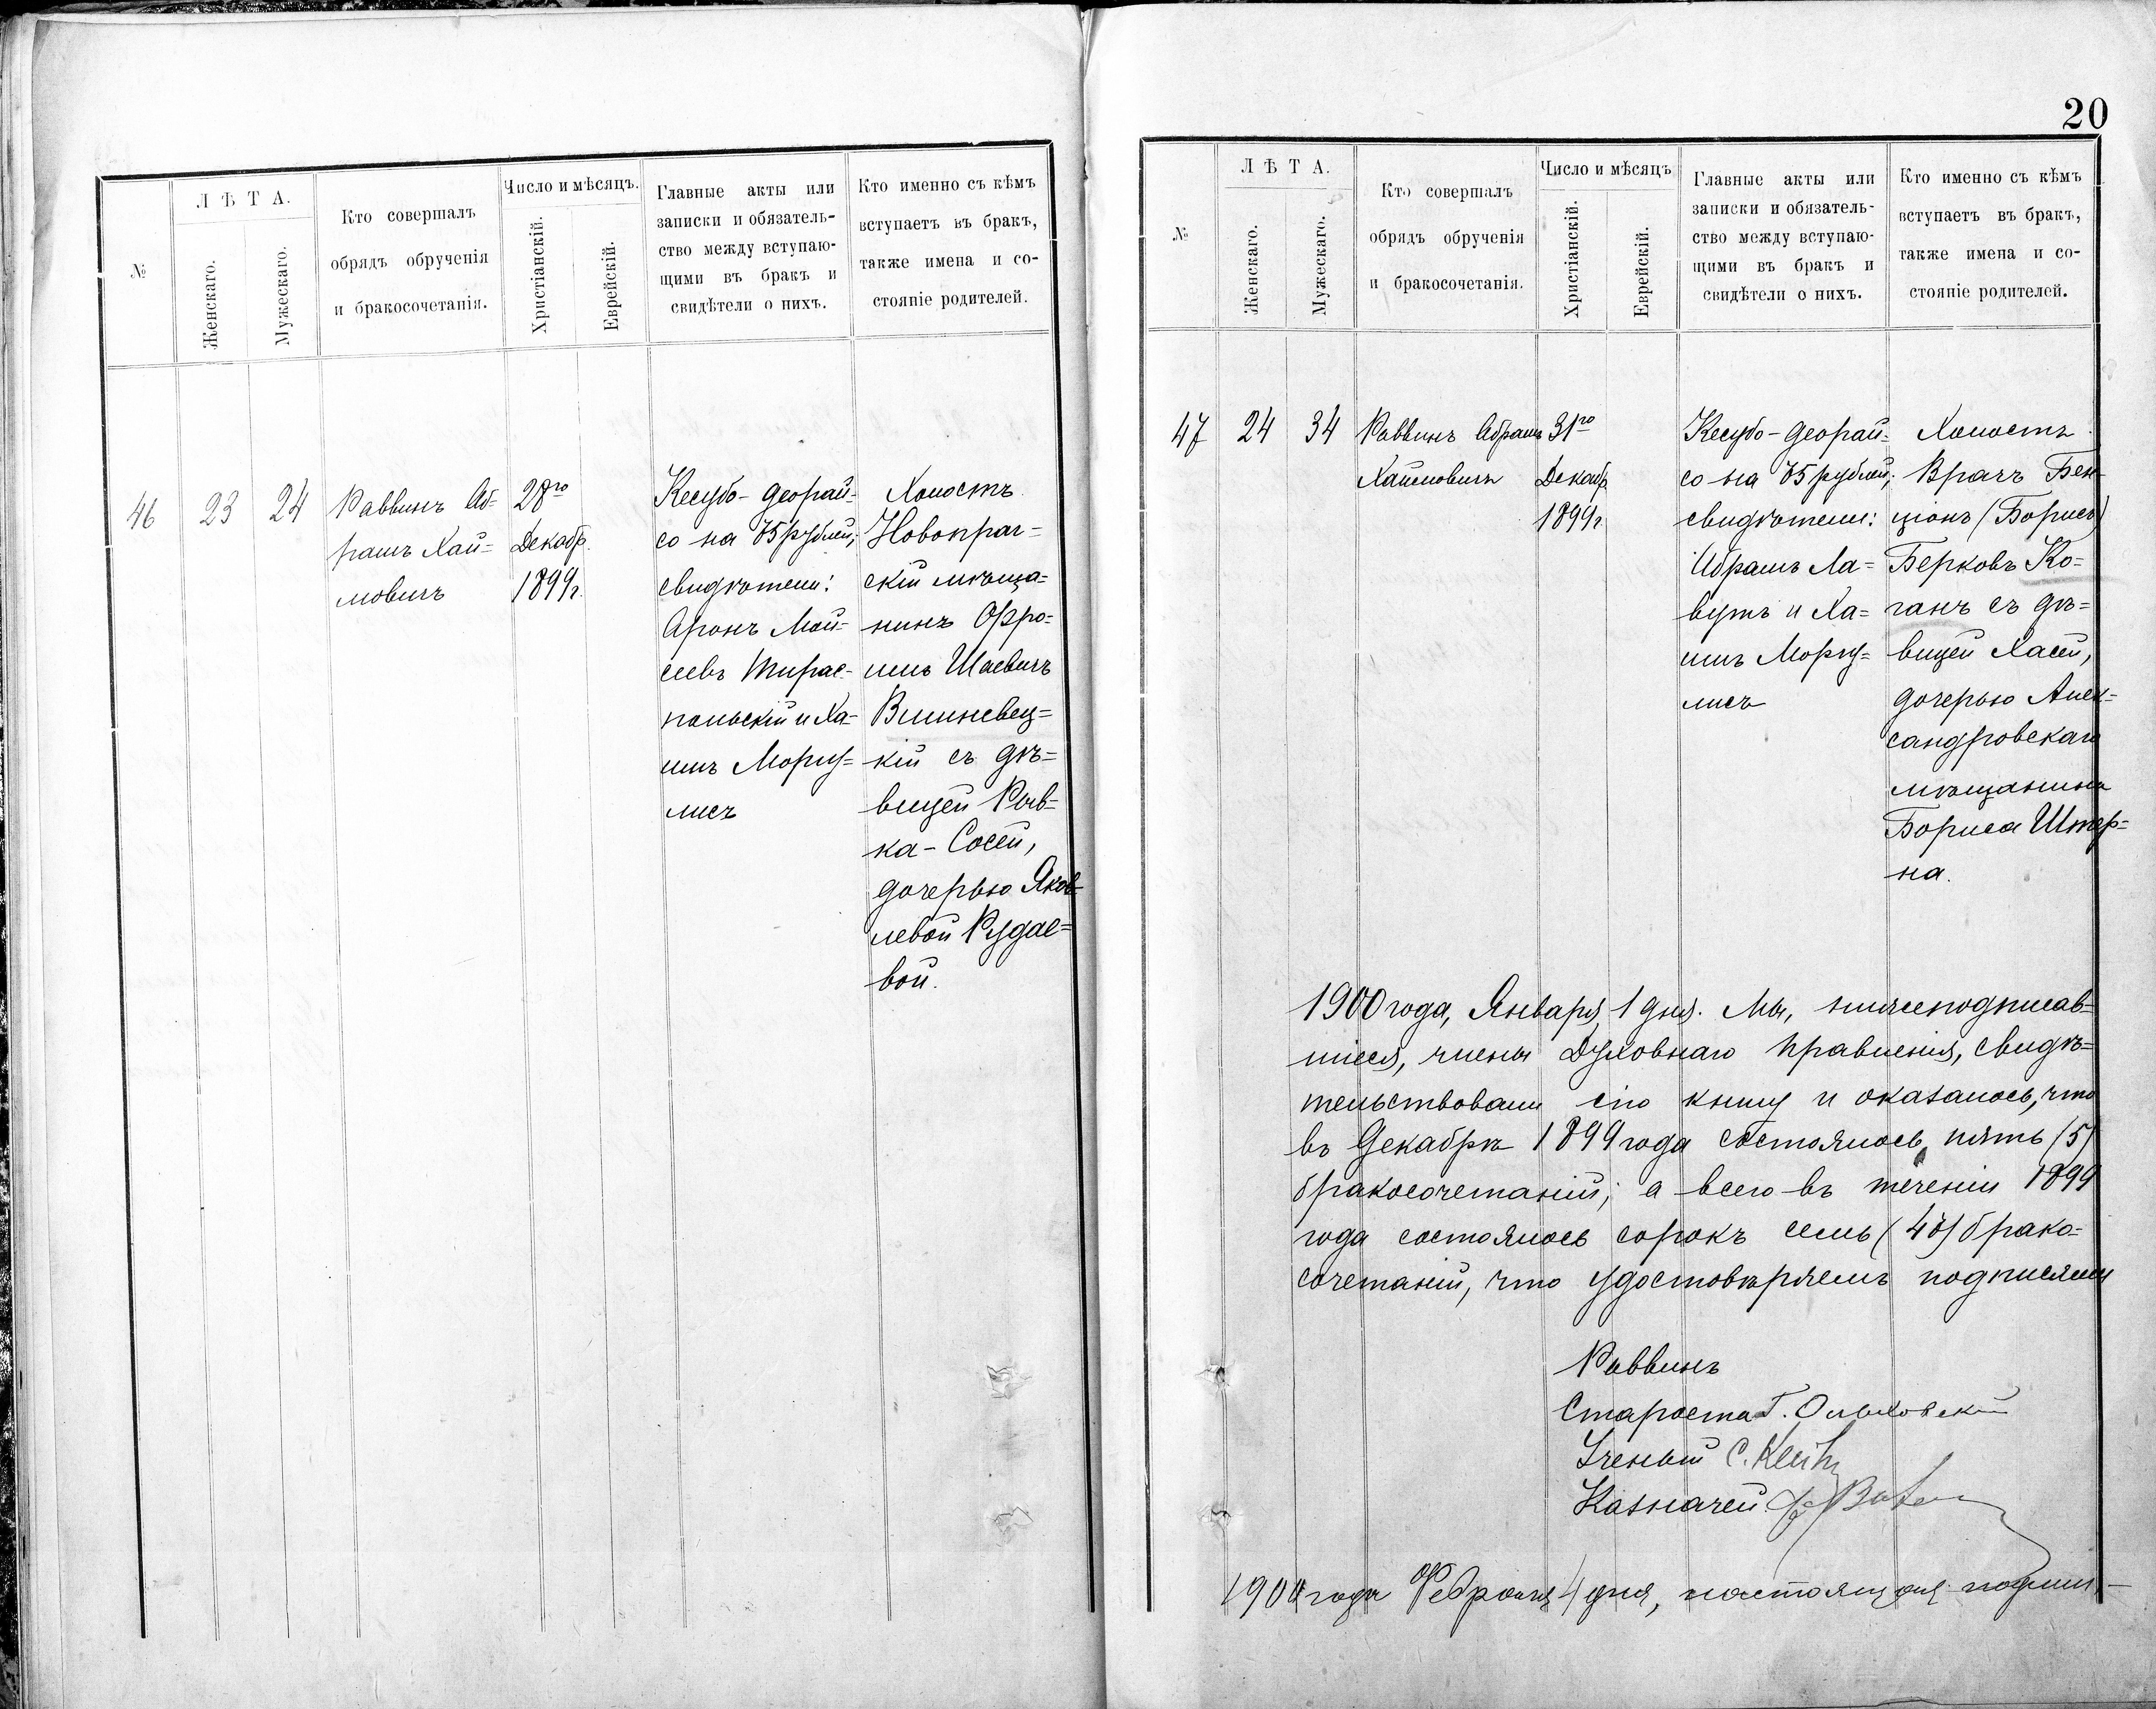 №
ЛѢТА.
Женскаго.
Мужескаго.
Кто совершалъ
обрядъ обрученія
и бракосочетанія.
Число и мѣсяцъ.
Христіанскій.
Еврейскій.
Главные акты или
записки и обязатель-
ство между вступаю-
щими въ бракъ и
свидѣтели о нихъ.
Кто именно съ кѣмъ
вступаетъ въ бракъ,
также имена и со-
стояніе родителей.
46
23
24
Раввинъ Аб-
рамъ Хай=
мовичъ
28го
Декабр.
1899г.
Кесубо-деорай-
со на 75 рублей;
свидѣтели:
Аронъ Мой-
сеевъ Тирас-
польскій и Ха-
имъ Моргу=
лисъ
Холостъ
Новопраг=
скій мѣща=
нинъ Фро=
имъ Шаевичъ
Вишневец=
кій съ дѣ=
вицей Рив=
ка-Сосей,
дочерью Яков-
левой Рудае=
вой.
20
№
ЛѢТА.
Женскаго.
Мужескаго.
Кто совершалъ
обрядъ обрученія
и бракосочетанія.
Число и мѣсяцъ
Христіанскій.
Еврейскій.
Главные акты или
записки и обязатель-
ство между вступаю-
щими въ бракъ и
свидѣтели о нихъ.
Кто именно съ кѣмъ
вступаетъ въ бракъ,
также имена и со-
стояніе родителей.
47
24
34
Раввинъ Абрамъ
Хаймовичъ
31го
Декабр
1899г.
Кесубо-деорай=
со на 75 рублей;
свидѣтели:
Абрамъ Ла=
вутъ и Ха=
имъ Моргу=
лисъ
Холостъ
Врачъ Бен-
ціонъ (Борисъ)
Берковъ Ко=
ганъ съ дѣ=
вицей Хасей,
дочерью Алек-
сандровскаго
мѣщанина
Бориса Штер=
на.
1900 года, Января 1 дня. Мы, нижеподписав=
шіеся, члены Духовнаго Правленія, свидѣ=
тельствовали сію книгу и оказалось, что
въ Декабрѣ 1899 года состоялось пять (5)
бракосочетаній; а всего въ теченіи 1899
года состоялось сорокъ семь (47) брако=
сочетаній, что удостовѣряемъ подписями
Раввинъ
Староста Г. Ольховскій
Ученый С.
Казначей
1900 года Февраля 4 дня, настоящая